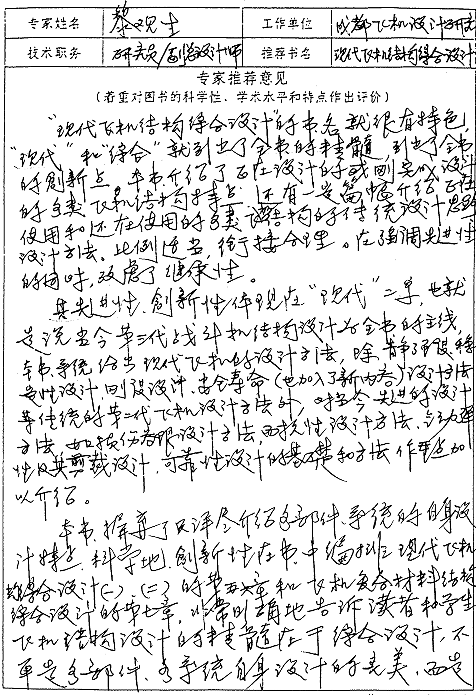 专家姓名 黎观生 工作单位 成都飞机设计研究
技术职务 研究员/副总设计师 推荐书名 现代飞机结构综合设计
专家推荐意见
(着重对图书的科学性、学术水平和特点作出评价)
“现代飞机结构综合设计”的书名就很有特色
“现代”和“综合”就列出了全书的精髓,列出了全书
的创新点。本书介绍了正在设计的或刚完成设计
的各类飞机结构特点,还有一定篇幅介绍正在
使用和还在使用的各类结构的传统设计思想
设计方法。比例适当,衔接合理。在强调先进性
的同时,考虑了继承性。
其先进性、创新性体现在“现代”二字,也就
是说当今第三代战斗机结构设计为全书的主线,
本书系统给出现代飞机的设计方法,除静强度稳
定性设计,刚度设计,安全寿命(也加入了新内容)设计方法
等传统的第二代飞机设计方法外,对当今先进的设计
方法,如损伤容限设计方法,耐久性设计方法,气动弹
性及其剪裁设计,可靠性设计的基础和方法作重点加
以介绍。
本书摒弃了只详尽介绍各部件、系统的自身设
计特点,科学地、创新性在书中编排了现代飞机
结构综合设计(一)、(二)的第五、六章和飞机复合材料结构
综合设计的第七章,非常明确地告诉读者和学生
飞机结构设计的精髓在于综合设计,不
单是各部件、各系统自身设计的完美,而是